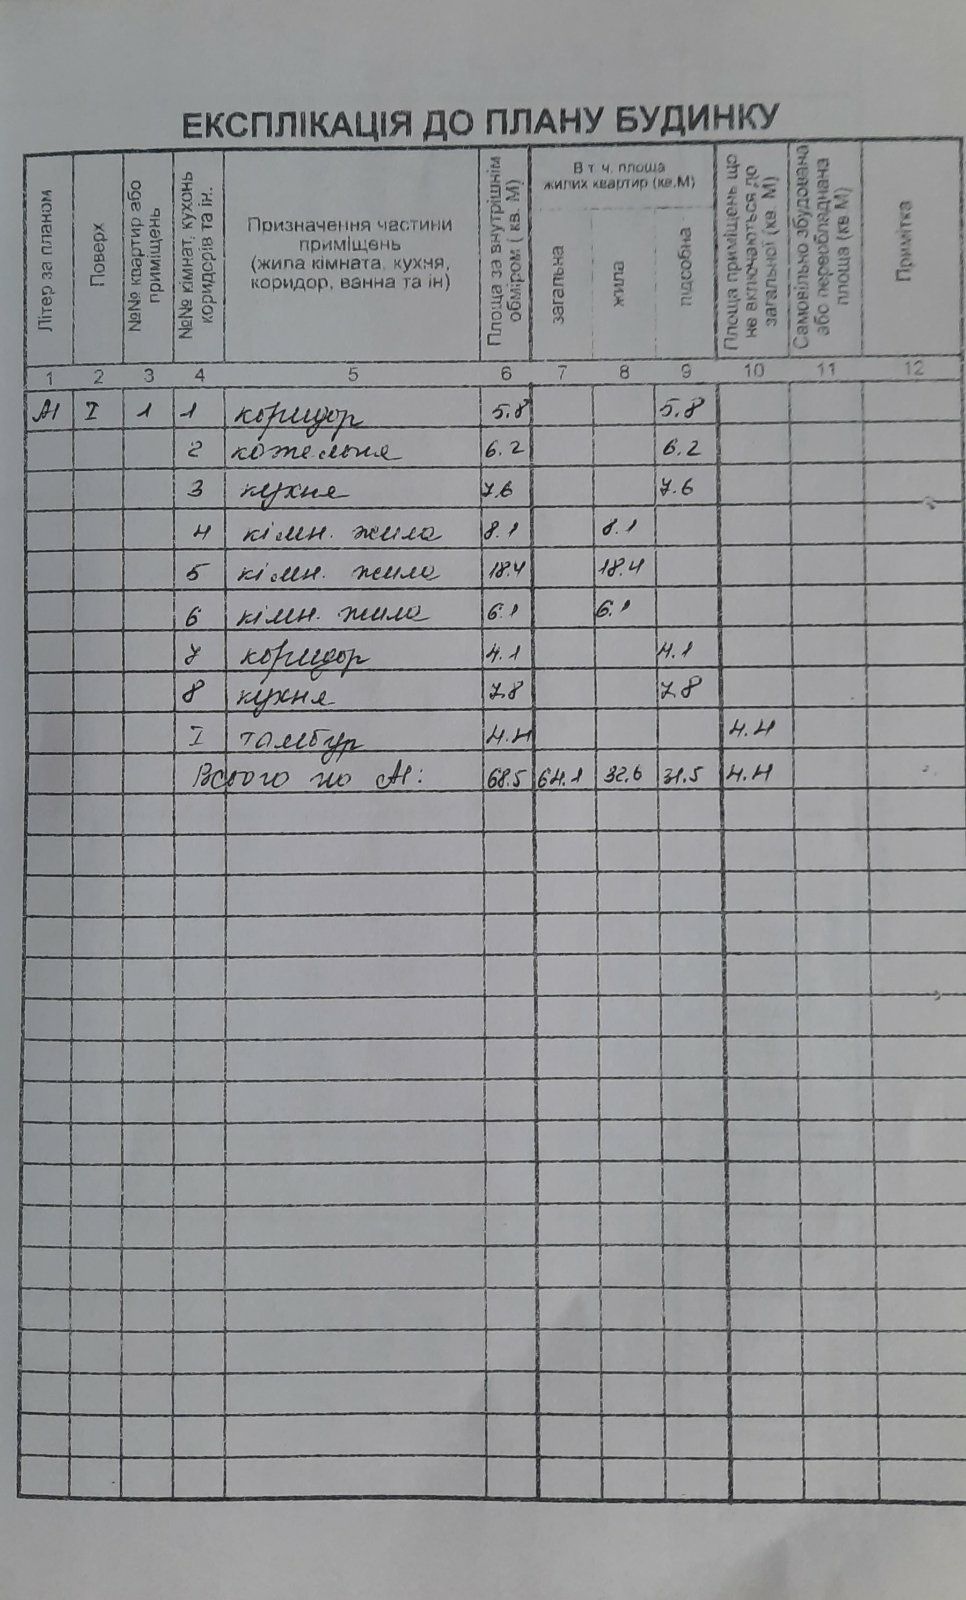 ЕКСПЛІКАЦІЯ ДО ПЛАНУ БУДИНКУ
Літер за планом
Поверх
№№ квартир або приміщень
№№ кімнат, кухонь коридорів та ін.
Призначення частини приміщень (жила кімната, кухня, коридор, ванна та ін)
Площа за внутрішнім обміром ( кв. М)
В т. ч. площа жилих квартир (кв.М)
загальна
жила
підсобна
Площа приміщень що не включаються до загальної (кв. М)
Самовільно збудована або переобладнана площа (кв М)
Примітка
1 2 3 4 5 6 7 8 9 10 11 12
А1 I 1 1 коридор 5.8 5.8
2 котельня 6.2 6.2
3 кухня 7.6 7.6
4 кімн. жила 8.1 8.1
5 кімн. жила 18.4 18.4
6 кімн. жила 6.1 6.1
7 коридор 4.1 4.1
8 кухня 7.8 7.8
I тамбур 4.4 4.4
Всього по А1: 68.5 64.1 32.6 31.5 4.4